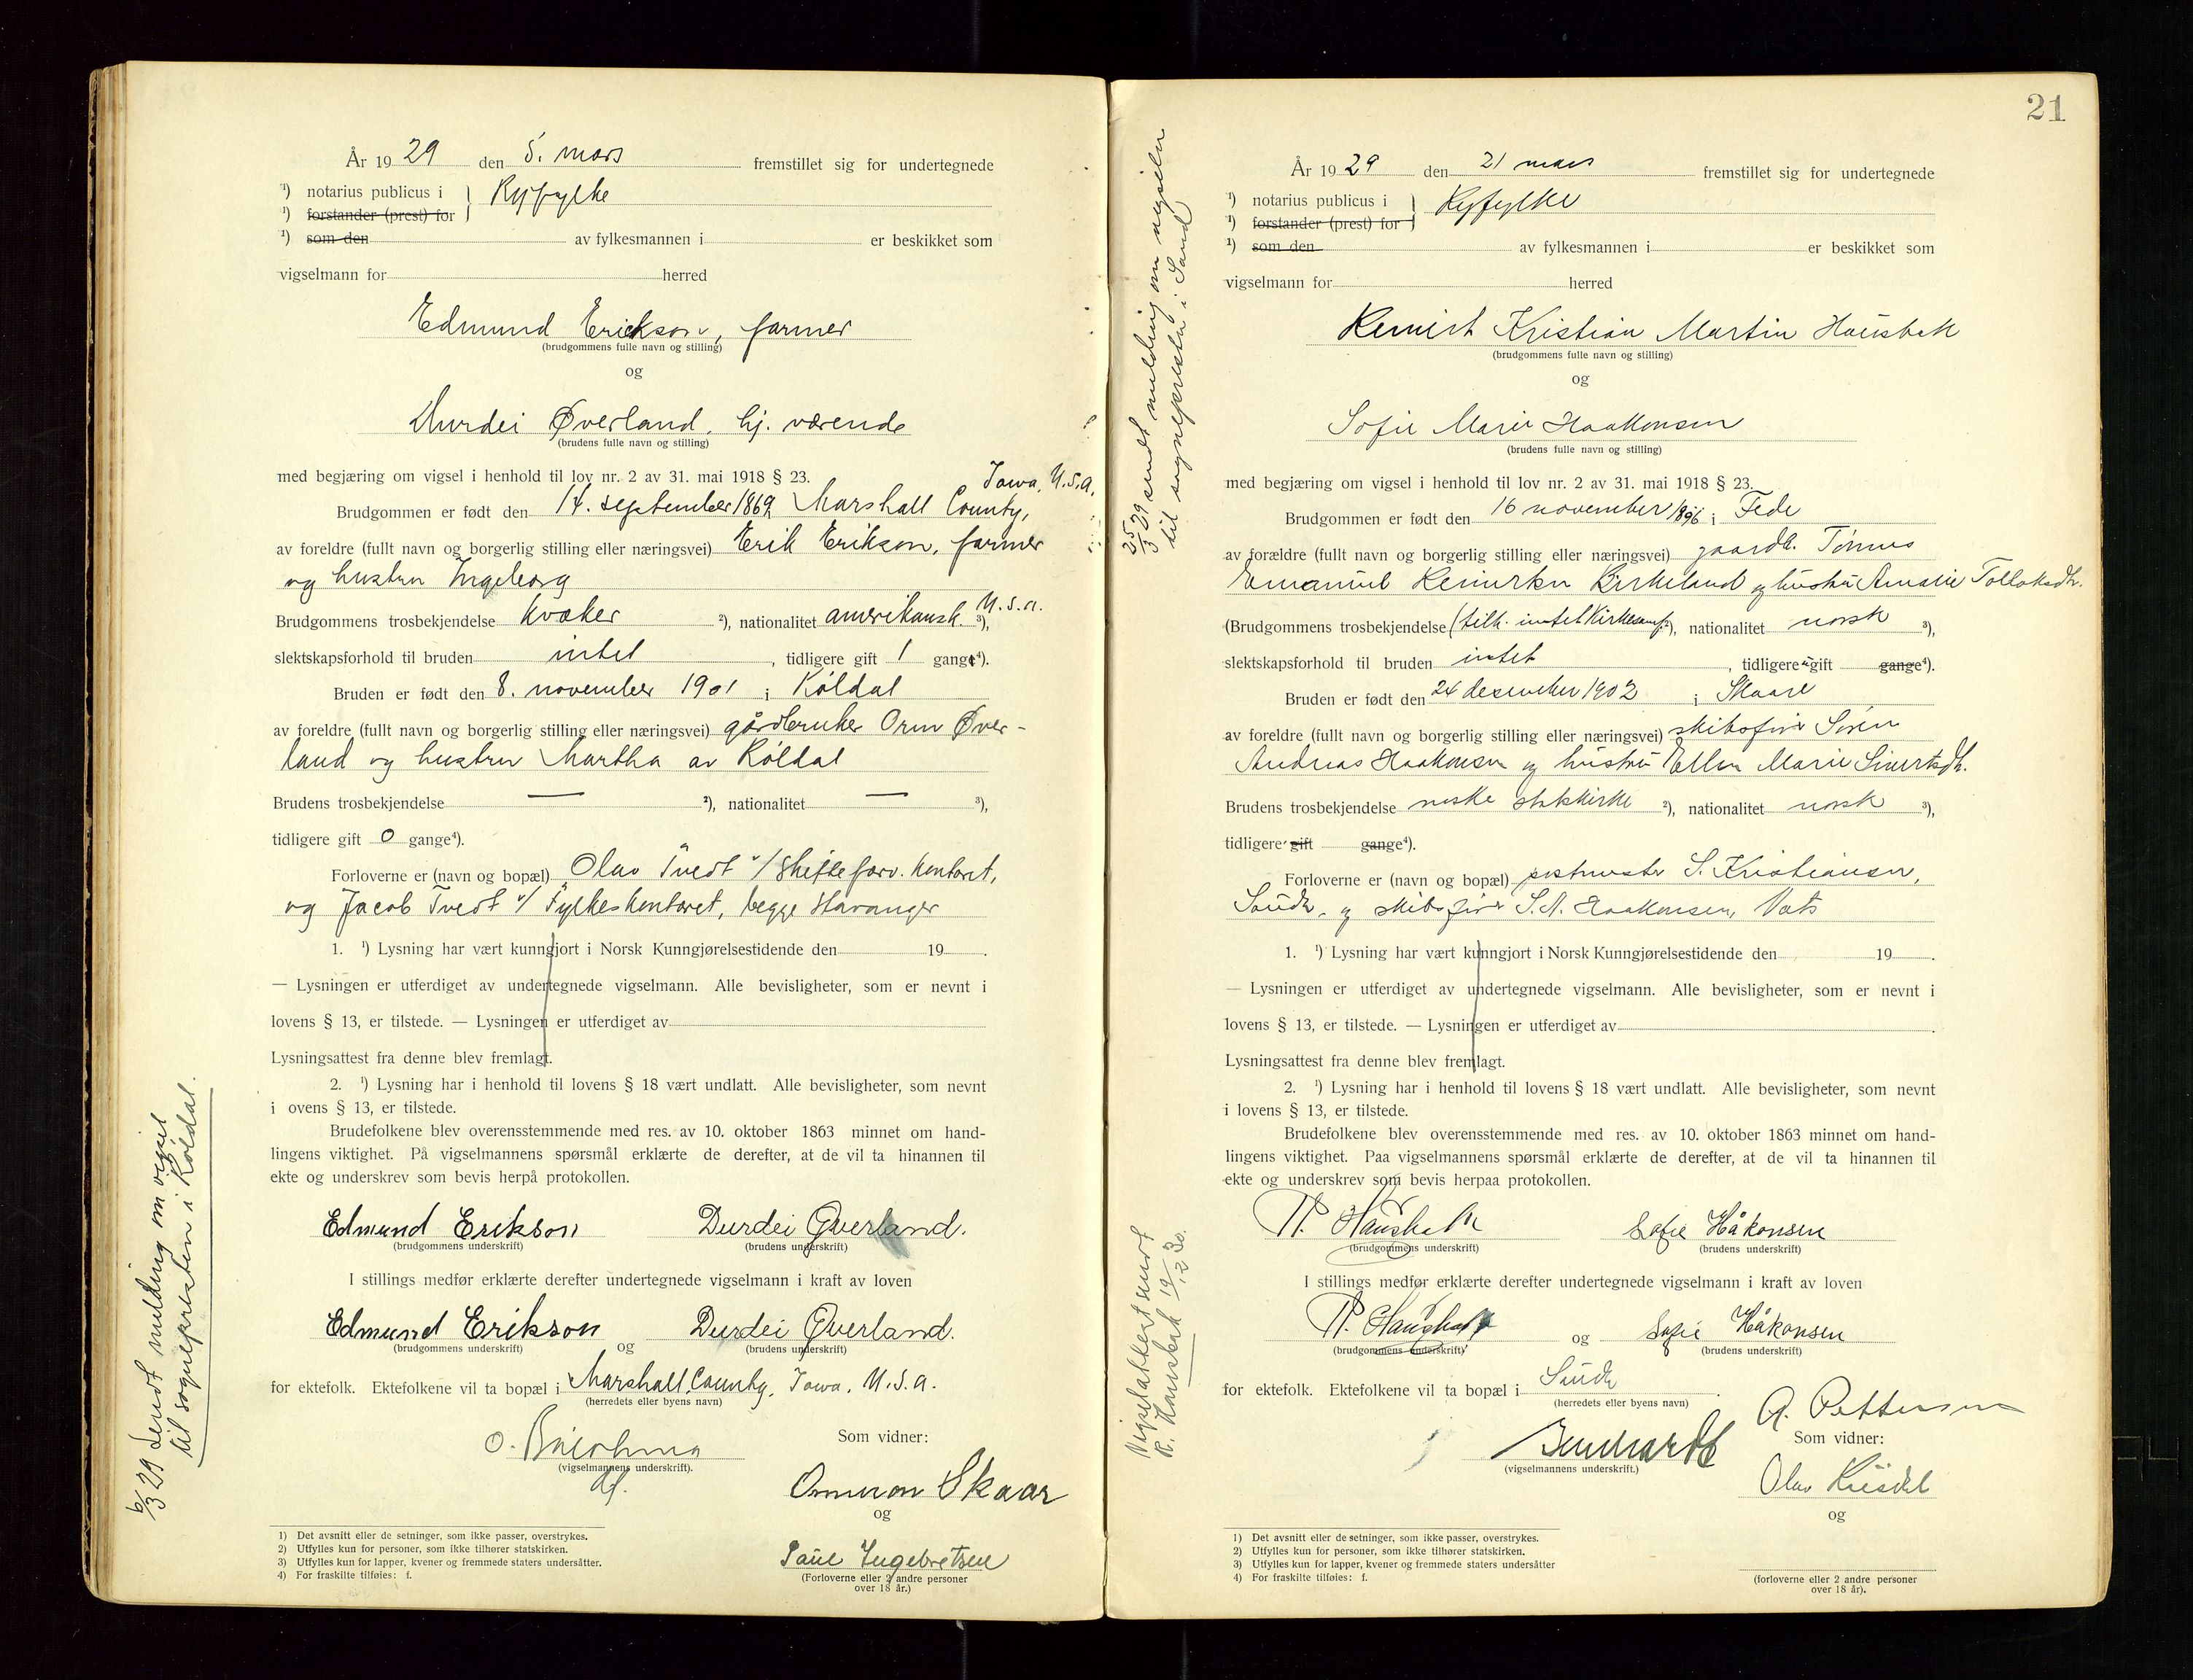 År 19 29 den 5. mars fremstillet sig for undertegnede
¹) notarius publicus i } Ryfylke
¹) forstander (prest) for
¹) som den av fylkesmannen i er beskikket som
vigselmann for herred
Edmund Erickson, farmer
(brudgommens fulle navn og stilling)
og
Durdei Øverland, hj. værende
(brudens fulle navn og stilling)
med begjæring om vigsel i henhold til lov nr. 2 av 31. mai 1918 § 23.
Iowa, U.S.A.
Brudgommen er født den 14. september 1869 Marshall County,
av foreldre (fullt navn og borgerlig stilling eller næringsvei) Erik Erikson, farmer
og hustru Ingeborg
Brudgommens trosbekjendelse kvæker ²), nationalitet amerikansk U.S.A. ³),
slektskapsforhold til bruden intet, tidligere gift 1 gange⁴).
Bruden er født den 8. november 1901 i Røldal
av foreldre (fullt navn og borgerlig stilling eller næringsvei) gårdbruker Orm Øver-
land og hustru Martha av Røldal
Brudens trosbekjendelse — ²), nationalitet — ³),
tidligere gift 0 gange⁴).
Forloverne er (navn og bopæl) Olav Tvedt v/ Skifteforv. kontoret,
og Jacob Tvedt v/ Fylkeskontoret, begge Stavanger
1. ¹) Lysning har vært kunngjort i Norsk Kunngjørelsestidende den 19 .
— Lysningen er utferdiget av undertegnede vigselmann. Alle bevisligheter, som er nevnt i
lovens § 13, er tilstede. — Lysningen er utferdiget av
Lysningsattest fra denne blev fremlagt.
2. ¹) Lysning har i henhold til lovens § 18 vært undlatt. Alle bevisligheter, som nevnt
i ovens § 13, er tilstede.
Brudefolkene blev overensstemmende med res. av 10. oktober 1863 minnet om hand-
lingens viktighet. På vigselmannens spørsmål erklærte de derefter, at de vil ta hinannen til
ekte og underskrev som bevis herpå protokollen.
Edmund Erikson Durdei Øverland.
(brudgommens underskrift) (brudens underskrift)
I stillings medfør erklærte derefter undertegnede vigselmann i kraft av loven
Edmund Erikson og Durdei Øverland.
(brudgommens underskrift) (brudens underskrift)
for ektefolk. Ektefolkene vil ta bopæl i Marshall County, Iowa, U.S.A.
(herredets eller byens navn)
O.
(vigselmannens underskrift).
Som vidner:
Ommon Skaar
og
Paul Ingebretsen
(Forloverne eller 2 andre personer
over 18 år.)
1) Det avsnitt eller de setninger, som ikke passer, overstrykes.
2) Utfylles kun for personer, som ikke tilhører statskirken.
3) Utfylles kun for lapper, kvener og fremmede staters undersåtter.
4) For fraskilte tilføies: f.
6/3 29 sendt melding om vigsel
til sognepresten i Røldal.
21
År 19 29 den 21 mars fremstillet sig for undertegnede
¹) notarius publicus i } Ryfylke
¹) forstander (prest) for
¹) som den av fylkesmannen i er beskikket som
vigselmann for herred
Reinert Kristian Martin Hausbak
(brudgommens fulle navn og stilling)
og
Sofie Marie Haakonsen
(brudens fulle navn og stilling)
med begjæring om vigsel i henhold til lov nr. 2 av 31. mai 1918 § 23.
Brudgommen er født den 16 november 1896 i Fede
av forældre (fullt navn og borgerlig stilling eller næringsvei) gaardb. Tønnes
Emanuel Reinertsen Birkeland og hustru Amalie Tollaksdtr.
(Brudgommens trosbekjendelse (tilh. intet kirkesamf.²), nationalitet norsk ³),
slektskapsforhold til bruden intet, tidligere gift gange⁴).
Bruden er født den 24 desember 1902 i Skaare
av foreldre (fullt navn og borgerlig stilling eller næringsvei) skibsfører Søren
Andreas Haakonsen og hustru Ellen Marie Sivertsdtr.
Brudens trosbekjendelse norske statskirke ²), nationalitet norsk ³),
tidligere gift gange⁴).
Forloverne er (navn og bopæl) postmester S. Kristiansen,
Saude, og skibsfører S.A. Haakonsen, Vats
1. ¹) Lysning har vært kunngjort i Norsk Kunngjørelsestidende den 19 .
— Lysningen er utferdiget av undertegnede vigselmann. Alle bevisligheter, som er nevnt i
lovens § 13, er tilstede. — Lysningen er utferdiget av .
Lysningsattest fra denne blev fremlagt.
2. ¹) Lysning har i henhold til lovens § 18 vært undlatt. Alle bevisligheter, som nevnt
i lovens § 13, er tilstede.
Brudefolkene blev overensstemmende med res. av 10. oktober 1863 minnet om hand-
lingens viktighet. Paa vigselmannens spørsmål erklærte de derefter, at de vil ta hinannen til
ekte og underskrev som bevis herpaa protokollen.
R. Hausbak Sofie Håkonsen
(brudgommens underskrift) (brudens underskrift)
I stillings medfør erklærte derefter undertegnede vigselmann i kraft av loven
R. Hausbak og Sofie Håkonsen
(brudgommens underskrift) (brudens underskrift)
for ektefolk. Ektefolkene vil ta bopæl i Saude .
(herredets eller byens navn)
A. Pettersen
(vigselmannens underskrift.)
Som vidner:
Olav
og
(forloverne eller 2 andre personer
over 18 år).
1) Det avsnitt eller de setninger, som ikke passer, overstrykes.
2) Utfylles kun for personer, som ikke tilhører statskirken.
3) Utfylles kun for lapper, kvener og fremmede staters undersåtter
4) For fraskilte tilføies: f.
25/3 29 sendt melding om vigselen
til sognepresten i Sand
Vigselattest sendt
R. Hausbak 19/12 30.